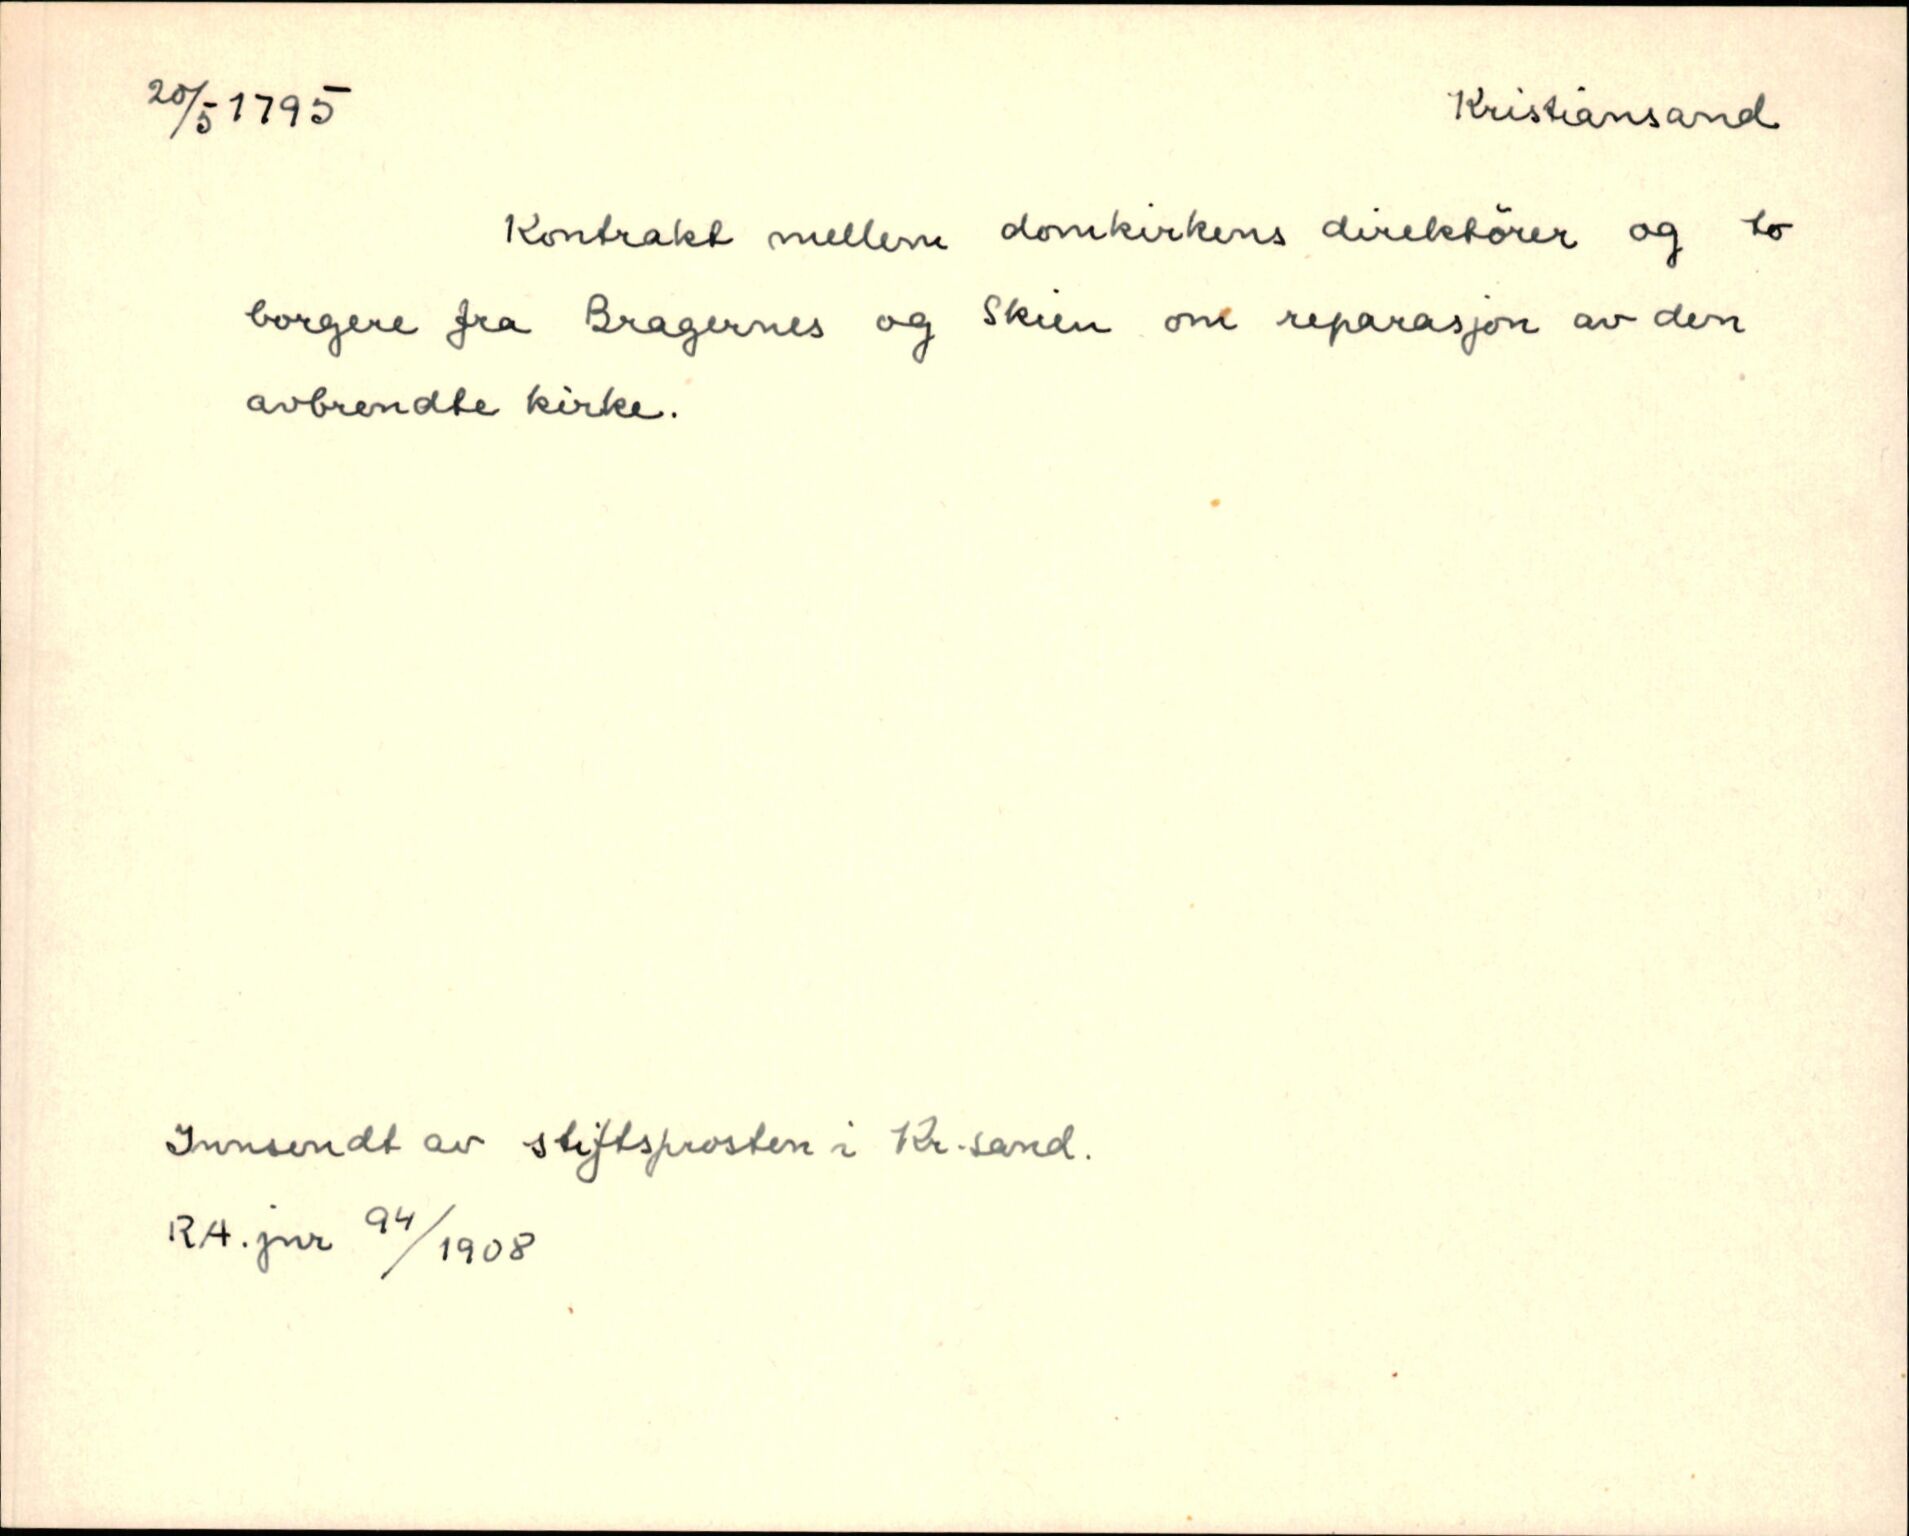 20/5 1795 Kristiansand
Kontrakt mellem domkirkens direktörer og to
borgere fra Bragernes og Skien om reparasjon av den
avbrendte kirke.
Innsendt av stiftsprosten i Kr.sand.
RA. jnr 94/1908